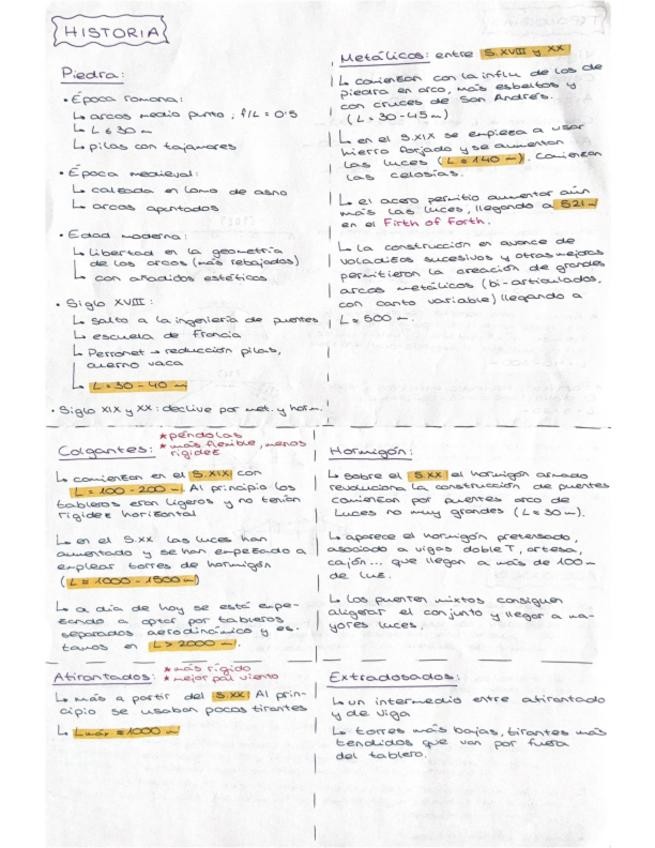 HISTORIA
Piedra:
• Época romana:
↳ arcos medio punto; f/L = 0'5
↳ L ≤ 30 m
↳ pilas con tajamares
• Época medieval:
↳ calzada en lomo de asno
↳ arcos apuntados
• Edad moderna:
↳ libertad en la geometría
de los arcos (más rebajados)
↳ con añadidos estéticos
• Siglo XVIII:
↳ salto a la ingeniería de puentes
↳ escuela de Francia
↳ Perronet → reducción pilas,
cuerno vaca
↳ L = 30 - 40 m
• Siglo XIX y XX: declive por met. y horm.
Metálicos: entre S.XVIII y XX
↳ comienzan con la influ de los de
piedra en arco, más esbeltos y
con cruces de San Andrés.
(L = 30-45 m)
↳ en el S.XIX se empieza a usar
hierro forjado y se aumentan
las luces (L = 140 m). Comienzan
las celosías.
↳ el acero permitio aumentar aún
más las luces, llegando a 521 m
en el Firth of Forth.
↳ la construcción en avance de
voladizos sucesivos y otras mejoras
permitieron la creación de grandes
arcos metálicos (bi-articulados,
con canto variable) llegando a
L = 500 m.
Colgantes: * péndolas
* más flexible, menos
rigidez
↳ comienzan en el S.XIX con
L = 100 - 200 m. Al principio los
tableros eran ligeros y no tenían
rigidez horizontal
↳ en el S.XX las luces han
aumentado y se han empezado a
emplear torres de hormigón
(L = 1000 - 1500 m)
↳ a día de hoy se está empe-
zando a optar por tableros
separados aerodinámico y es-
tamos en L > 2000 m.
Hormigón:
↳ sobre el S.XX el hormigón armado
revoluciona la construcción de puentes
comienzan por puentes arco de
luces no muy grandes (L = 30 m).
↳ aparece el hormigón pretensado,
asociado a vigas doble T, artesa,
cajón... que llegan a más de 100 m
de luz.
↳ los puentes mixtos consiguen
aligerar el conjunto y llegar a ma-
yores luces.
Atirantados: * más rígido
* mejor pal viento
↳ más a partir del S.XX. Al prin-
cipio se usaban pocos tirantes
↳ Lmáx = 1000 m
Extradosados:
↳ un intermedio entre atirantado
y de viga
↳ torres más bajas, tirantes más
tendidos que van por fuera
del tablero.